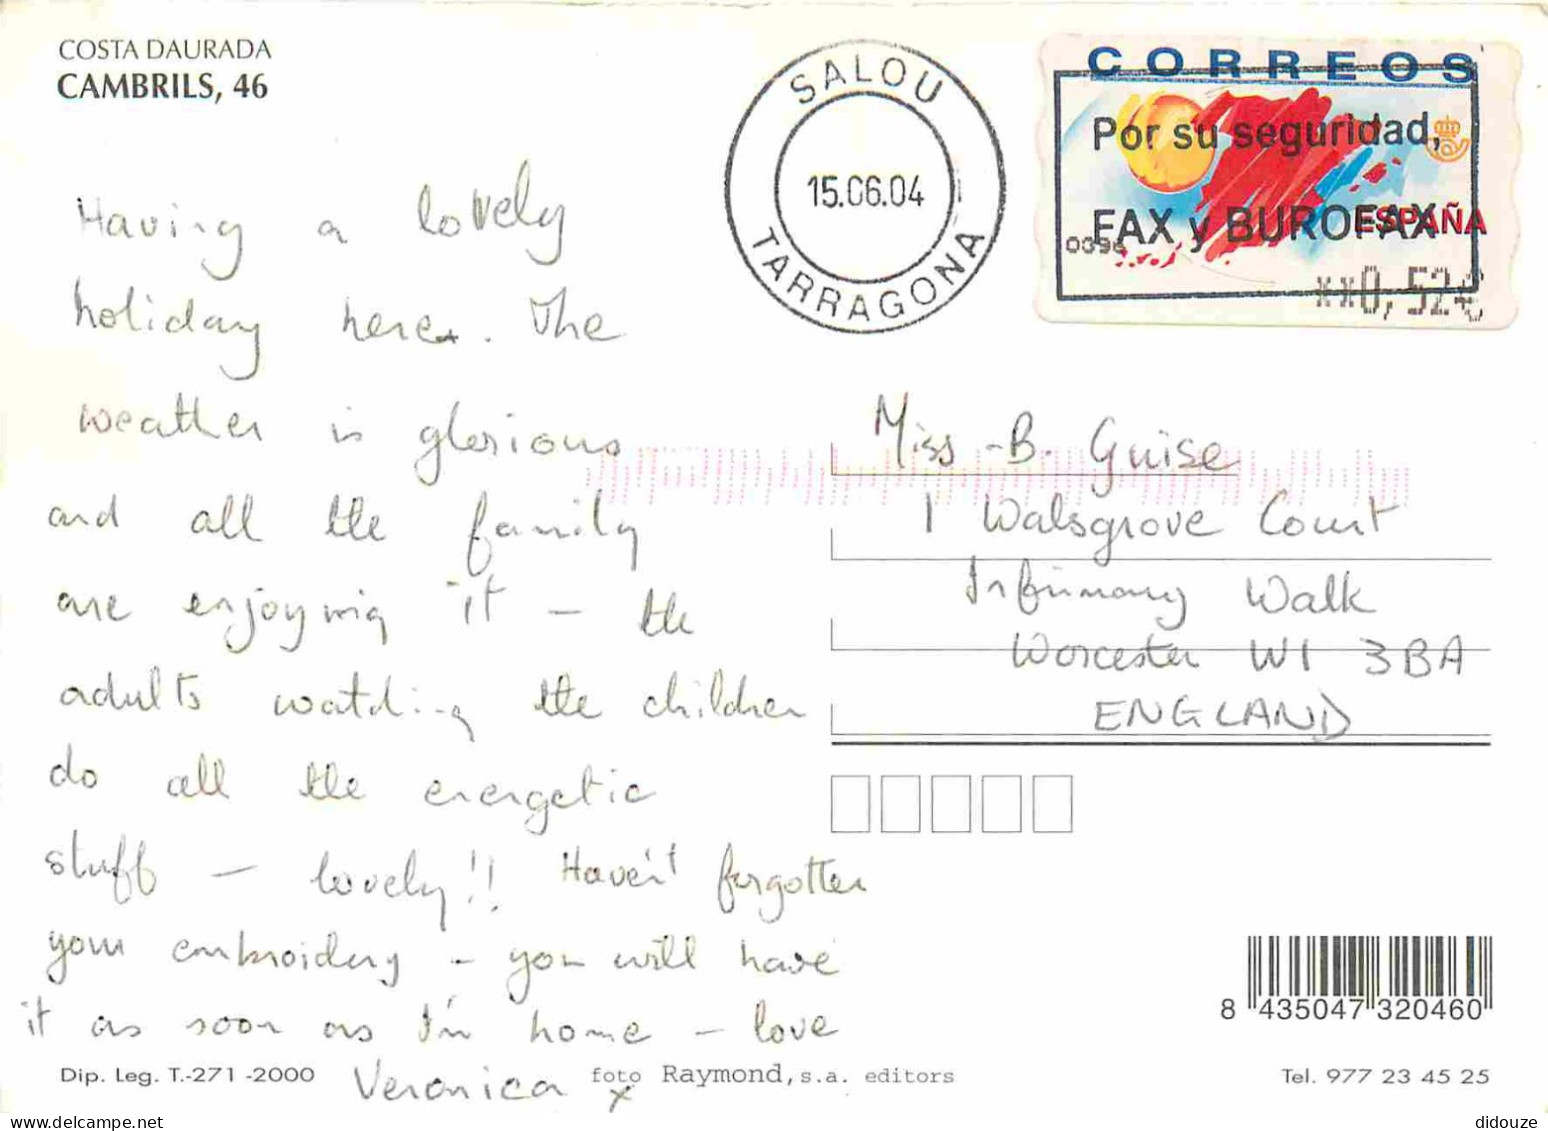 COSTA DAURADA
CAMBRILS, 46
SALOU
15.06.04
TARRAGONA
CORREOS
Por su seguridad,
FAX y BUROFAX
ESPAÑA
**0,52€
Having a lovely
holiday here. The
weather is glorious
and all the family
are enjoying it – the
adults watching the children
do all the energetic
stuff – lovely!! Haven't forgotten
your embroidery – you will have
it as soon as I'm home – love
Veronica x
Miss B. Guise
1 Walsgrove Court
Infirmary Walk
Worcester W1 3BA
ENGLAND
8 435047 320460
Dip. Leg. T.-271 -2000
foto Raymond, s.a. editors
Tel. 977 23 45 25
didouze